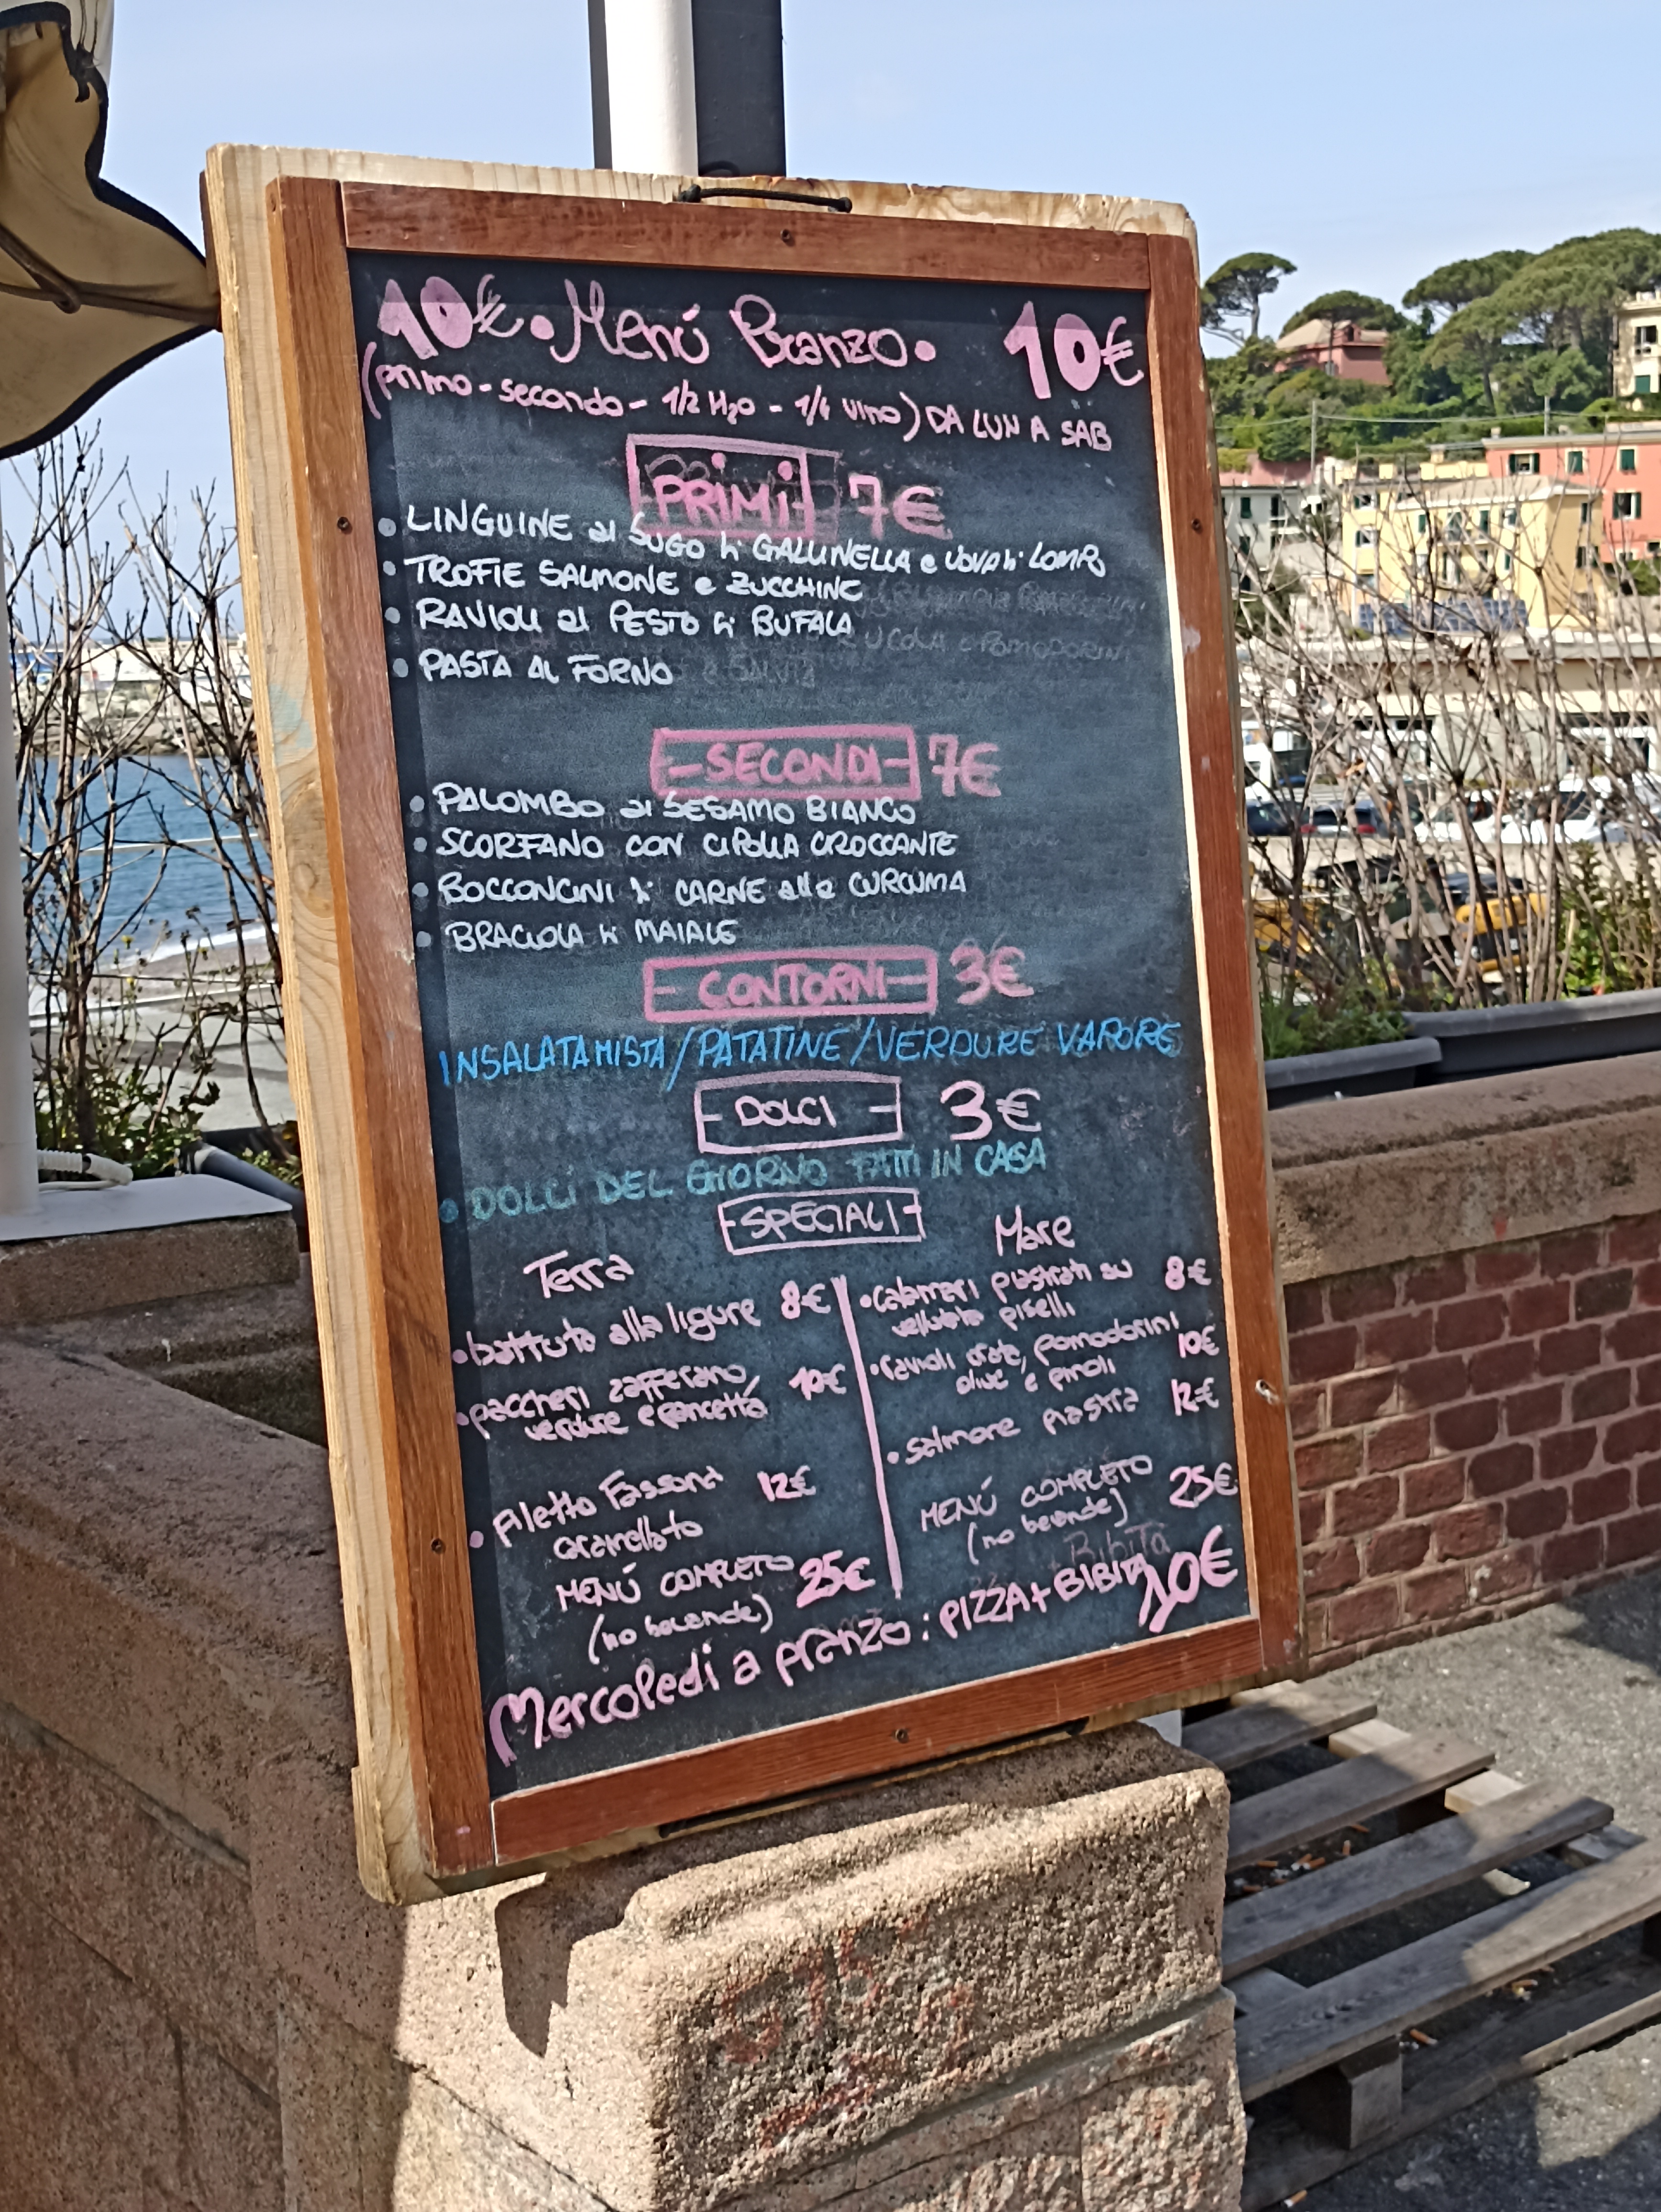 10€ • Menú Pranzo • 10€
(primo - secondo - 1/2 H2O - 1/4 vino) DA LUN A SAB
PRIMI 7€
• LINGUINE al SUGO di GALLINELLA e UOVA di LOMPO
• TROFIE SALMONE e ZUCCHINE
• RAVIOLI al PESTO di BUFALA
• PASTA AL FORNO
- SECONDI - 7€
• PALOMBO al SESAMO BIANCO
• SCORFANO CON CIPOLLA CROCCANTE
• BOCCONCINI di CARNE alla CURCUMA
• BRACIOLA di MAIALE
- CONTORNI - 3€
INSALATA MISTA / PATATINE / VERDURE VAPORE
- DOLCI - 3€
• DOLCI DEL GIORNO FATTI IN CASA
- SPECIALI -
Terra
• battuta alla ligure 8€
• paccheri zafferano, 10€
verdure e pancetta
• filetto Fassona 12€
caramellato
MENÚ COMPLETO 25€
(no bevande)
Mare
• Calamari piastrati su 8€
vellutata piselli
• ravioli orata, pomodorini 10€
olive e pinoli
• salmone piastra 12€
MENÚ COMPLETO 25€
(no bevande)
Mercoledi a pranzo : PIZZA + BIBITA 10€